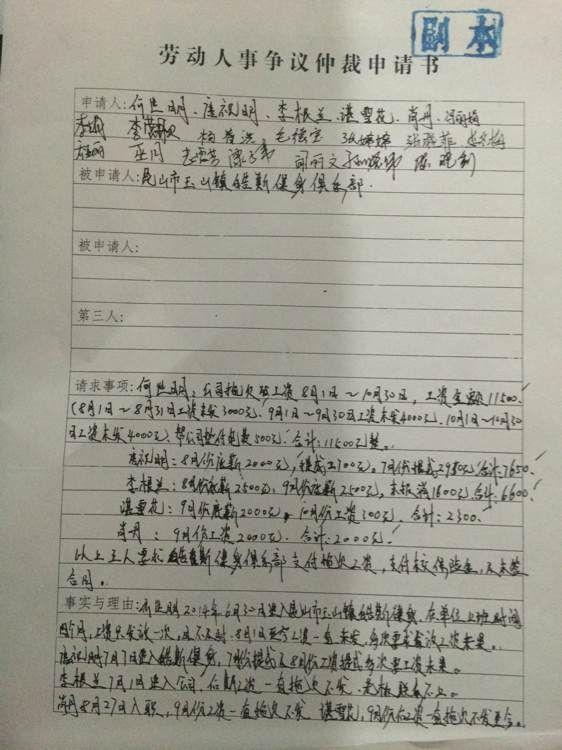 副本
劳动人事争议仲裁申请书
申请人:何 明、唐祝明、李根兰、谌雪花、肖丹、
李 李 杨 毛 张婷婷 张 菲 梅
巫月 司 文 陈
被申请人:昆山市玉山镇皓斯健身俱乐部.
被申请人:
第三人:
请求事项:何 明:公司拖欠 工资8月1日~10月30日,工资金额11500.
(8月1日~8月31日工资未发3000元、9月1日~9月30日工资未发4000元、10月1日~10月30
日工资未发4000元、帮公司 付 费500元.合计:11500元整。
唐祝明:8月份底薪2000元,提成2700元,7月份提成2980元合计:7650.
李根兰:8月份底薪2500元,9月份底薪2500元,未报 1600元合计:6600.
谌雪花:9月份底薪2000元,10月份工资300元,合计:2300.
肖丹:9月份工资2000元.合计:2000元.
以上 人要求皓斯健身俱乐部支付拖欠工资,支付 保险金,及未签
合同。
事实与理由:何 明2014年6月30日进入昆山市玉山镇皓斯健身,在单位上班时间
四个月,工资只发放一次,且不及时.8月1日至今工资一直未发,多次要求发放工资未果。
唐祝明7月7日进入皓斯健身,7月份提成及8月份工资提成多次要工资未果。
李根兰7月1日进入公司,后期工资一直拖欠不发.老板联系不上。
肖丹8月27日入职,9月份工资一直拖欠不发 谌雪花,9月份工资一直拖欠不发至今。